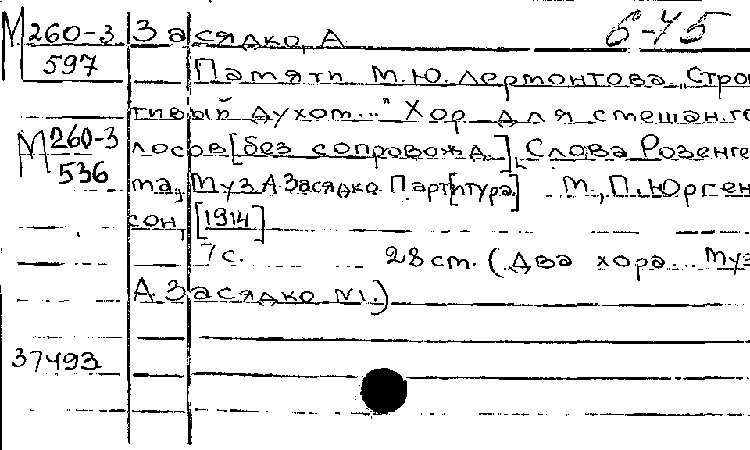 М 260-3 Засядко, А 6-45
597 Памяти М.Ю. Лермонтова „Строп
тивый духом..." Хор для смешан. го
М 260-3 лосов [без сопровожд.]. Слова Розенге
536 та, Муз А Засядко Парт[итура.] М., П. Юрген
сон, [1914]
7 с. 28 cm. (Два хора.. Муз
А. Засядко №1.)
37493